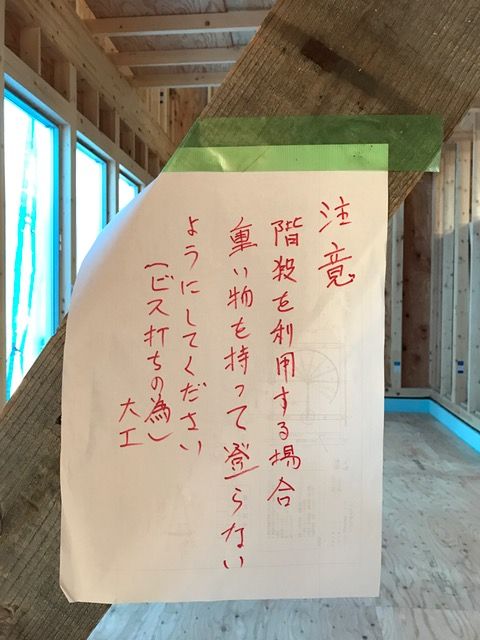 注意
階段を利用する場合
重い物を持って登らない
ようにしてください
(ビス打ちの為)
大工